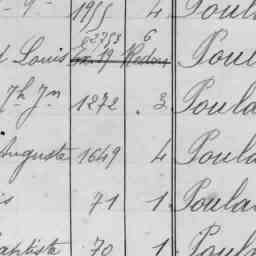 1955 4 Poula
Louis 2753 6 Poul
7h Jn 1272 3 Poula
Auguste 1649 4 Poula
71 1 Poula
aptiste 70 1 Poula